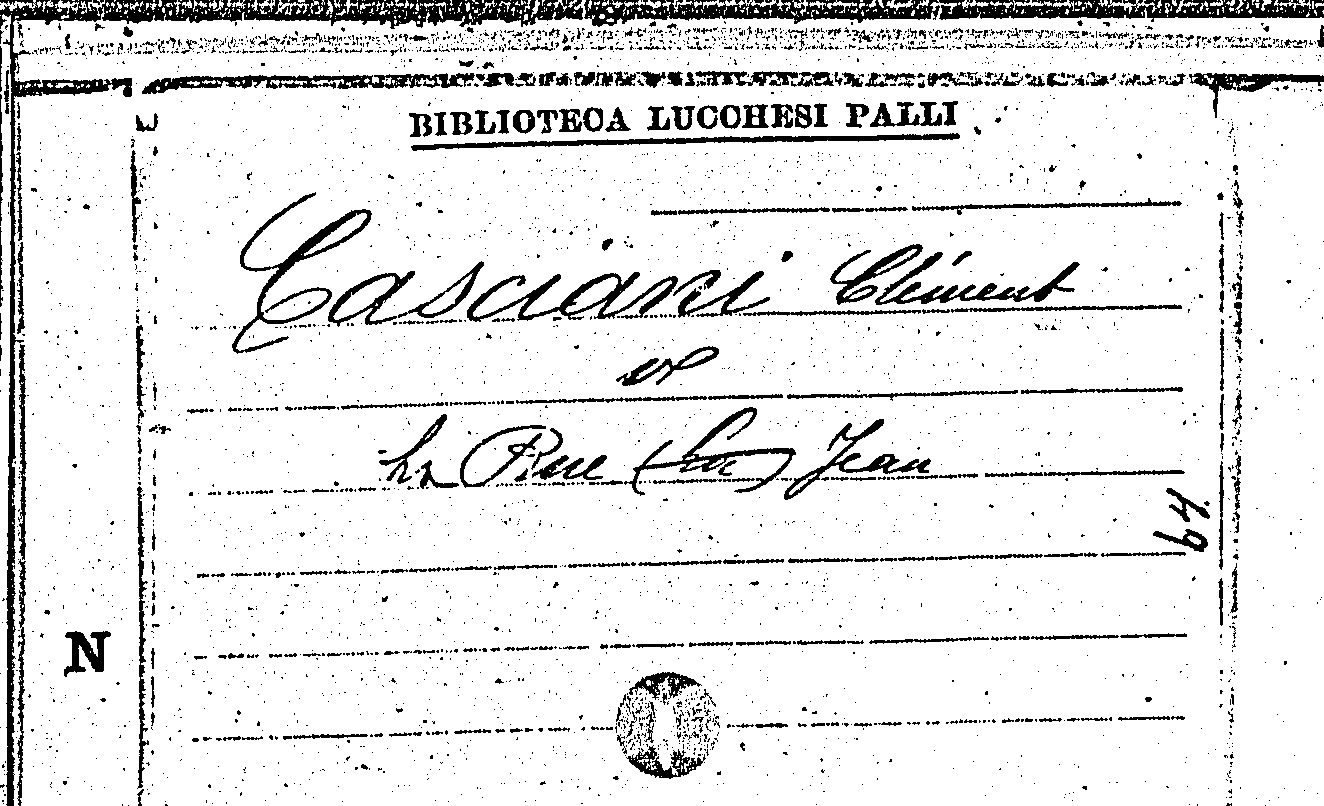 BIBLIOTECA LUCCHESI PALLI
Casciani Clément
et
La Rue (Luc) Jean
64
N